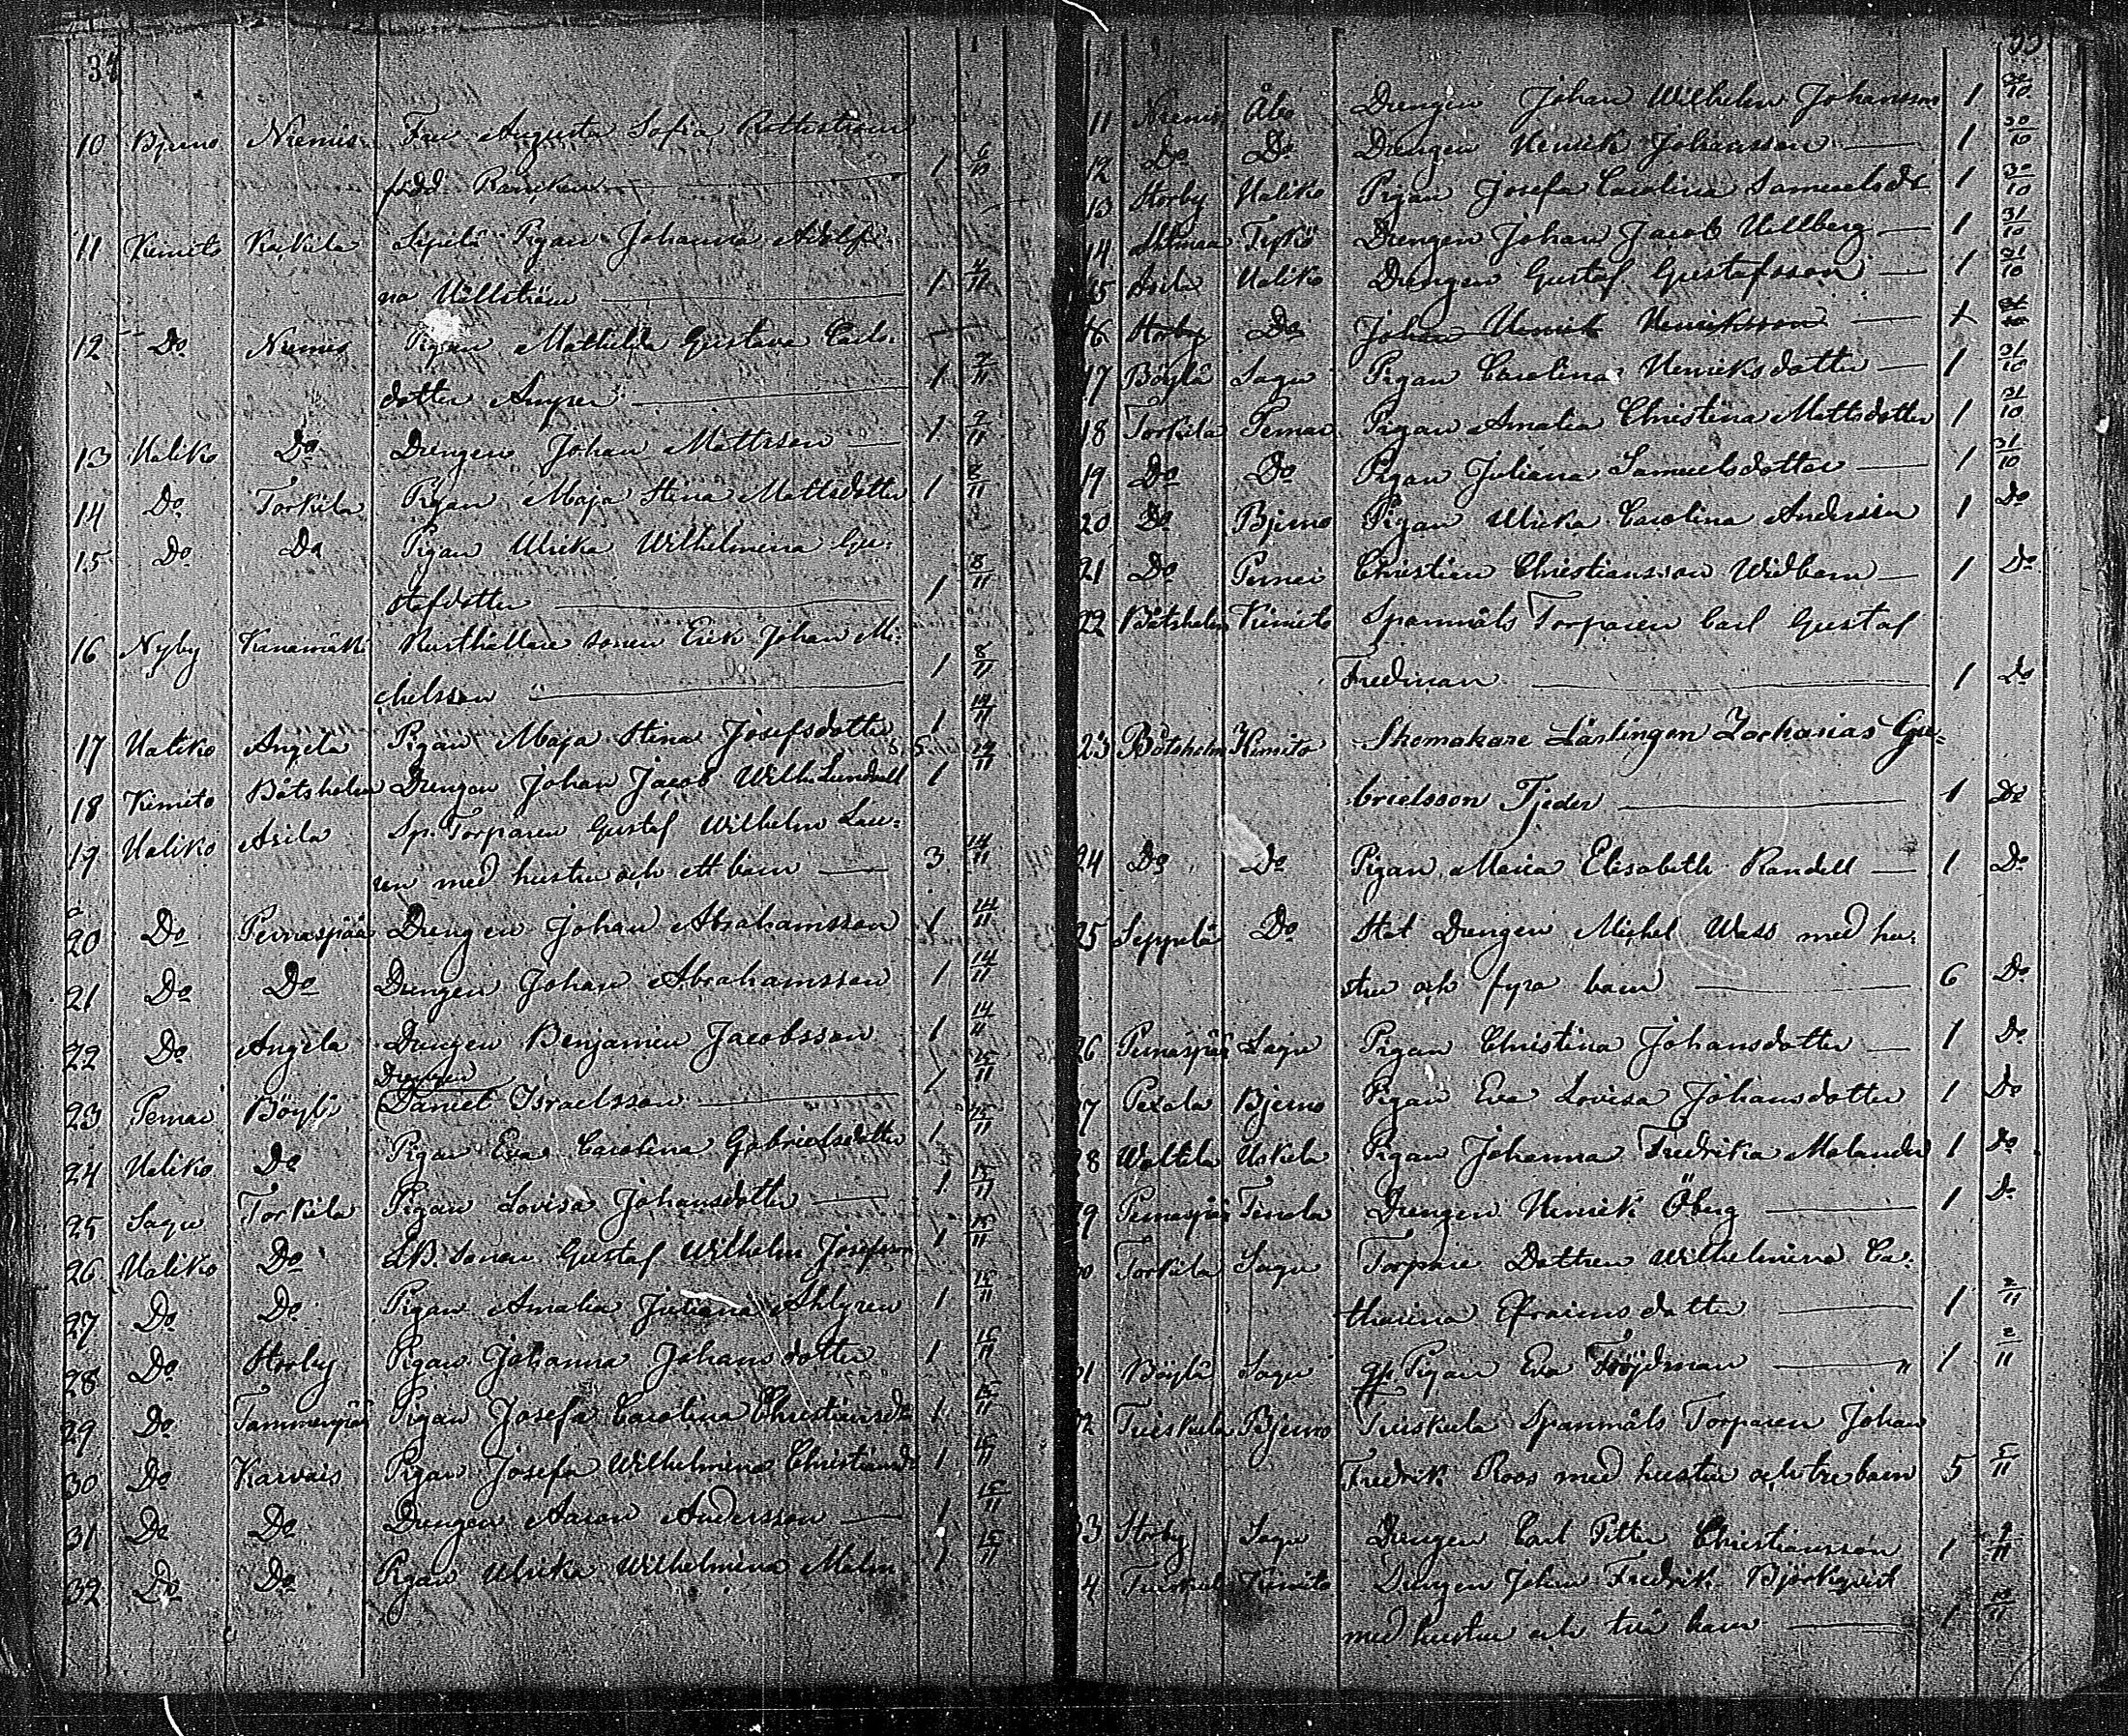 34
10 Bjerno Niemis Fru Augusta Sofia
född 1 6/10
11 Kimito Kaukila Sipilä Pigan Johanna Adolfi-
na Hällström 1 4/11
12 Do Niemis Pigan Mathilda Gustava Carls-
dotter 1 7/11
13 Haliko Do Drengen Johan Mattsson 1 9/11
14 Do Torkila Pigan Maja Stina Mattsdotter 1 8/11
15 Do Do Pigan Ulrika Wilhelmina Gu-
stafsdotter 1 8/11
16 Nyby Rusthållare sonen Erik Johan Mi-
chelsson 1 8/11
17 Haliko Angela Pigan Maja Stina Josefsdotter 1 14/11
18 Kimito Båtsholm Drengen Johan Jacob Wilh. Lundvall 1 14/11
19 Haliko Asila Sp. Torparen Gustaf Wilhelm Lau-
ren med hustru och ett barn 3 14/11
20 Do Pernaspää Drengen Johan Abrahamsson 1 14/11
21 Do Do Drengen Johan Abrahamsson 1 14/11
22 Do Angela Drengen Benjamin Jacobsson 1 14/11
Drengen
23 Pemar Böylä Daniel Israelsson 1 15/11
24 Haliko Do Pigan Eva Carolina Gabrielsdotter 1 15/11
25 Sagu Torkila Pigan Lovisa Johansdotter 1 15/11
26 Haliko Do sonen Gustaf Wilhelm Josefsson 1 15/11
27 Do Do Pigan Amalia Juliana Ahlgren 1 15/11
28 Do Storby Pigan Johanna Johansdotter 1 15/11
29 Do Tammenpää Pigan Josefa Carolina Christiansd. 1 15/11
30 Do Karvais Pigan Josefa Wilhelmina Christiansd. 1 15/11
31 Do Do Drengen Aaron Andersson 1 15/11
32 Do Do Pigan Ulrika Wilhelmina Malm 1 15/11
33
11 Niemis Åbo Drengen Johan Wilhelm Johansson 1 30/10
12 Do Do Drengen Henrik Johansson 1 30/10
13 Storby Haliko Pigan Josefa Carolina Samuelsdr 1 30/10
14 Tykö Drengen Johan Jacob Hellberg 1 31/10
15 Asila Haliko Drengen Gustaf Gustafsson 1 31/10
16 Storby Do Johan Henrik Henriksson 1 31/10
17 Böylä Sagu Pigan Carolina Henriksdotter 1 31/10
18 Torkila Pemar Pigan Amalia Christina Mattsdotter 1 31/10
19 Do Do Pigan Juliana Samuelsdotter 1 31/10
20 Do Bjerno Pigan Ulrika Carolina Andersin 1 Do
21 Do Pernei Christian Christiansson Widbom 1 Do
22 Båtsholm Kimito Spanmåls Torparen Carl Gustaf
Fredman 1 Do
23 Båtsholm Kimito Skomakare Lärlingen Zacharias Ga-
brielsson Tjeder 1 Do
24 Do Do Pigan Maria Elisabeth Randell 1 Do
25 Seppälä Do Stat Drengen Michel Wass med hu-
stru och fyra barn 6 Do
26 Pernaspää Sagu Pigan Christina Johansdotter 1 Do
7 Pexala Bjerno Pigan Eva Lovisa Johansdotter 1 Do
8 Waltila Uskela Pigan Johanna Fredrika Melander 1 Do
9 Pernaspää Tenala Drengen Henrik Öberg 1 Do
0 Torkila Sagu Torpare Dottren Wilhelmina Ca-
tharina Efraimsdotter 1 2/11
1 Böylä Sagu Pigan Eva Fröjdman 1 2/11
2 Tuiskula Bjerno Tuiskula Spanmåls Torparen Johan
Fredrik Roos med hustru och tre barn 5 5/11
3 Storby Sagu Drengen Carl Petter Christiansson 1 9/11
4 Tuiskula Kimito Drengen Johan Fredrik Björkqvist
med hustru och tre barn 1 10/11